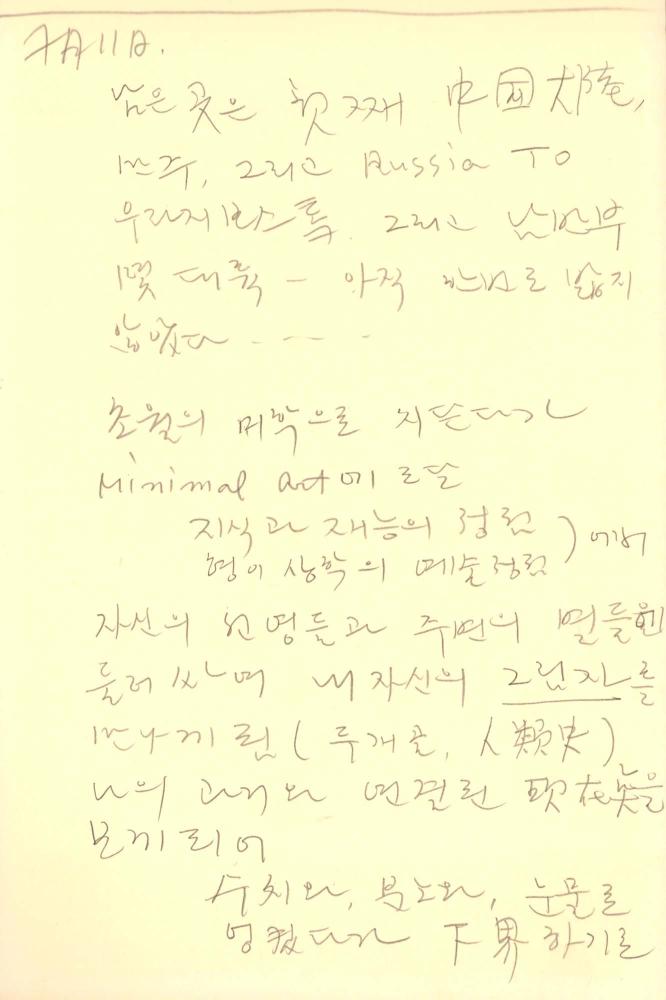 7月11日.
남은 곳은 첫째 中国 大陸,
만주, 그리고 Russia To
우라지보스톡. 그리고 남반부
몇 대륙 — 아직 발로 밟지
않았다 - - -
초월의 미학으로 치뜬다가
Minimal art에 로
지식과 재능의 정립
형이상학의 예술정립 ) 에서
자신의 환영들과 주변의 별들
둘러 싸여 내 자신의 그림자를
만나게 됨 ( 두개골, 人類史 )
나의 과거와 연결된 現在
보게 되어
수치와, 분노와, 눈물로
엉켰다가 下界 하기로